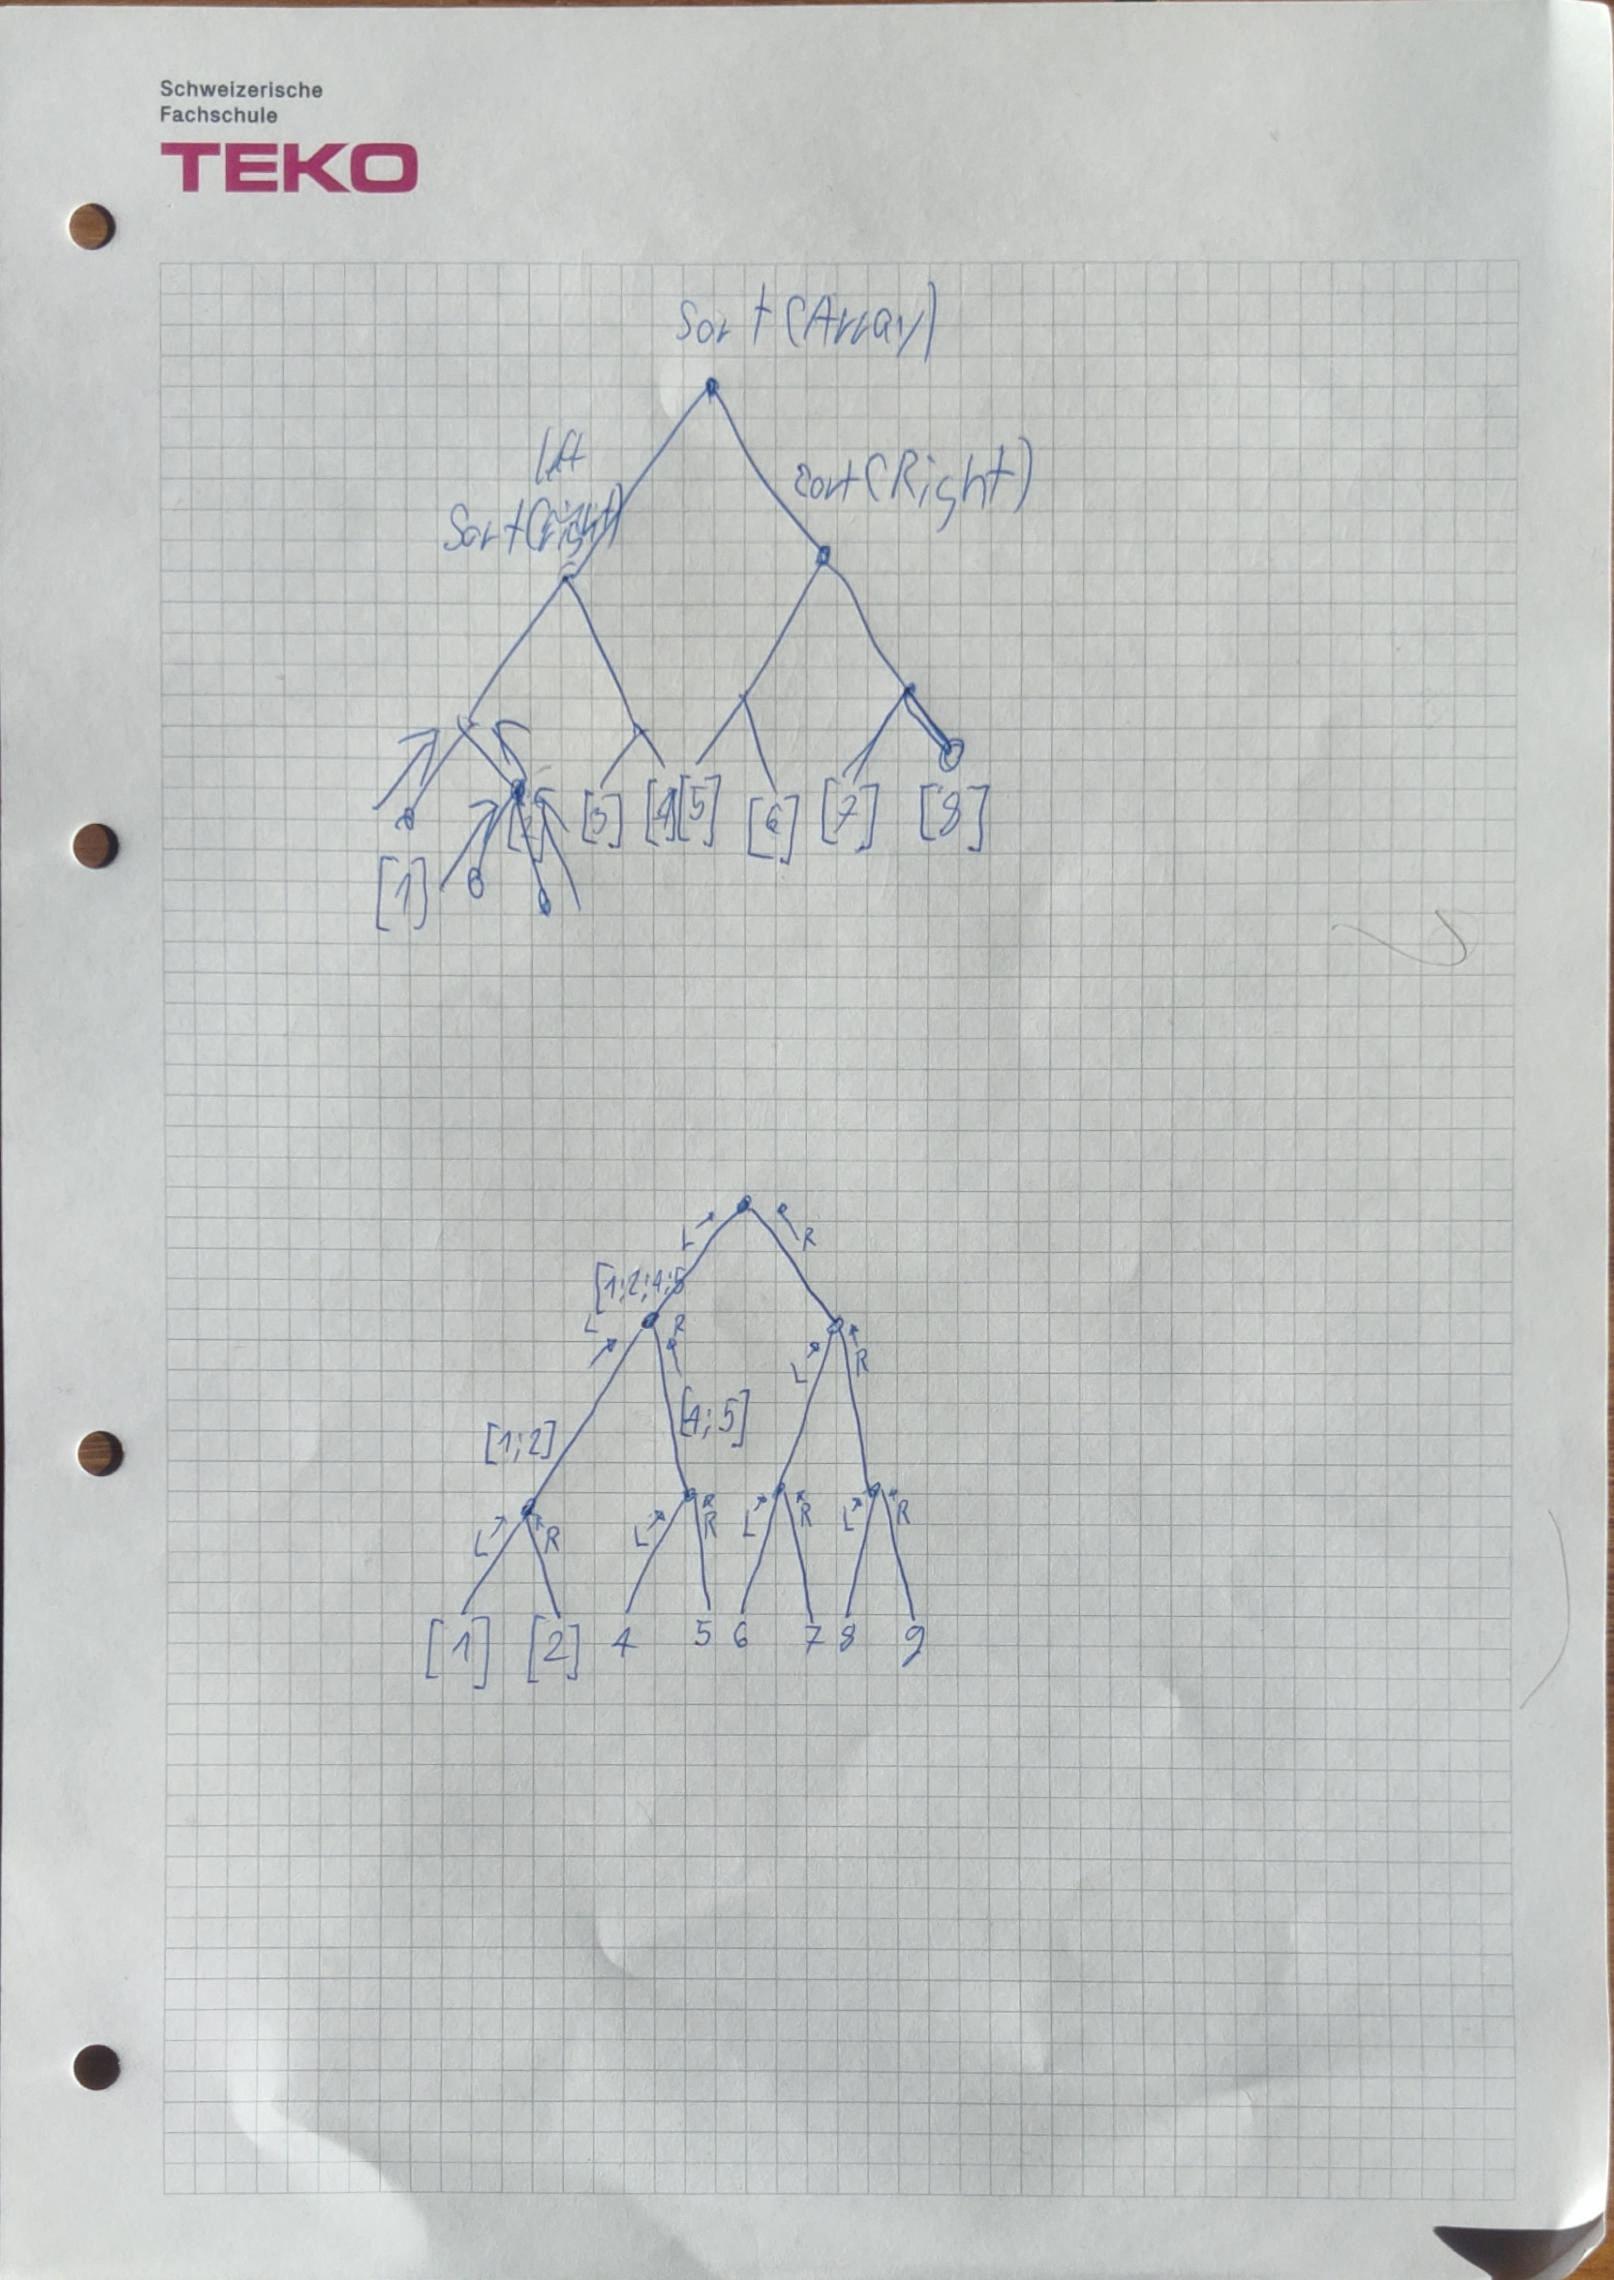 Schweizerische
Fachschule
TEKO
Sort(Array)
left
Sort(right)
sort(Right)
[3] [4] [5] [6] [7] [8]
[1]
L R
[1;2;4;5
L R L R
[4;5]
[1;2]
L R L R L R L R
[1] [2] 4 5 6 7 8 9